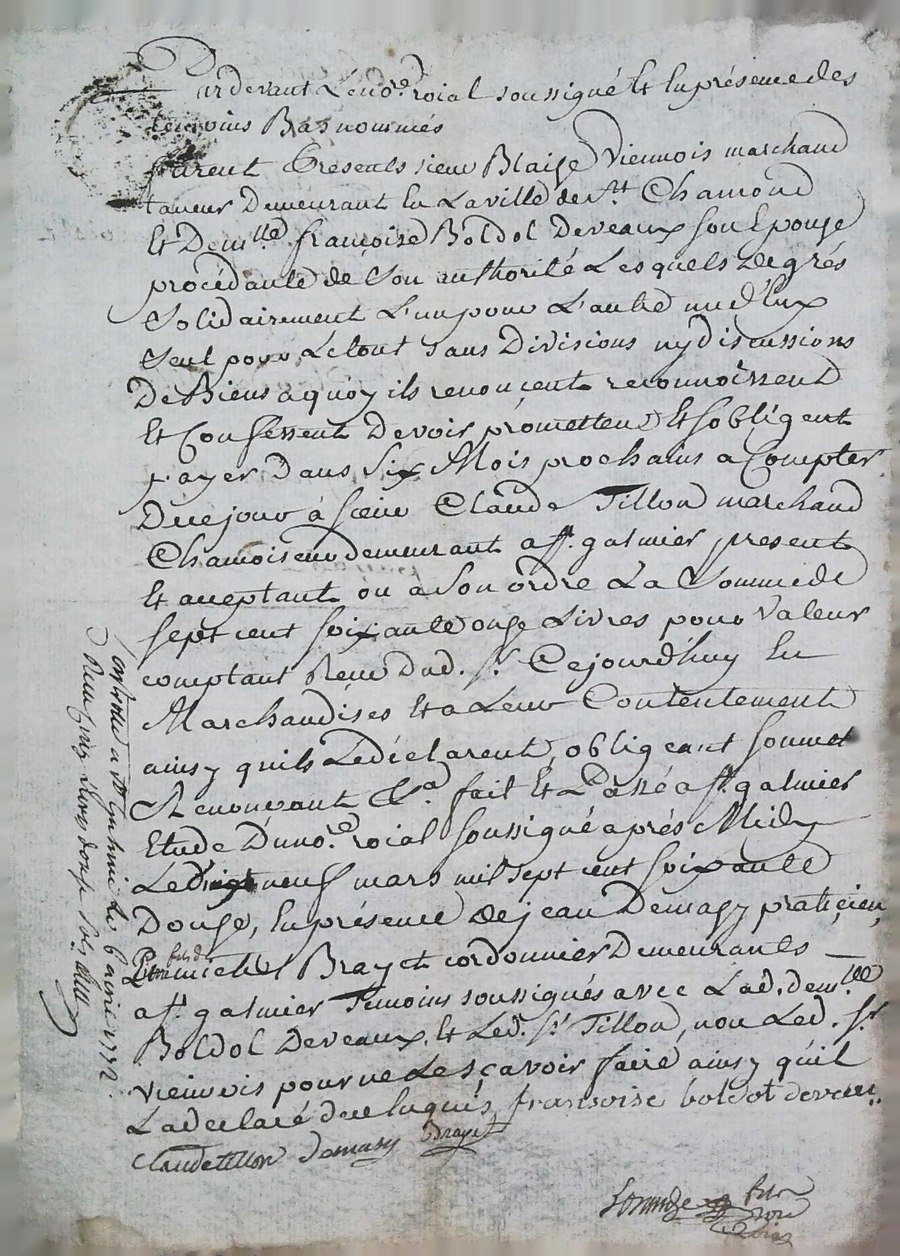 Pardevant Le no.re roial soussigné Et En présence des
temoins Bas nommés
furent Présents sieur Blaise Viennois marchand
taneur Demeurant En La ville de st Chamond
Et Dem.lle françoise Boldol Deveaux son Epouse
procédante de Son authorité Lesquels de grés
Solidairement L'un pour L'autre un d'Eux
Seul pour Le tout Sans Divisions ny discussions
De Biens a quoy ils renonçent reconnoissent
Et Confessent Devoir promettent Et sobligent
payer Dans Six Mois prochains a Compter
Du cejour à sieur Claude Tillon marchand
Chamoiseur demeurant a st. galmier present
Et acceptant ou a Son ordre La Somme de
sept cent soixante onze Livres pour Valeur
comptant Reçue Dud. sr. Cejourd'huy En
Marchandises Et a Leur Contentement
ainsy quils Le déclarent, obligeant soumet
Renonçant &a. fait Et Passé a st. galmier
Etude Du no.re roial soussigné après Midy
Le neuf mars mil sept cent soixante
Douze, En présence de jean Demasy praticien,
fils d
michel Brayet cordonnier Demeurants
a st. galmier Temoins soussignés avec Lad. dem.lle
Boldol Deveaux, Et Led. sr. Tillon, non Led. sr.
viennois pour ne Le sçavoir faire ainsy qu'il
La declaré de ce Enquis, fransoise boldot deveau
Claude tillon Demasy Brayet
Controllé a st galmier Le 6 avril 1772.
Reçu six Livres douze sols